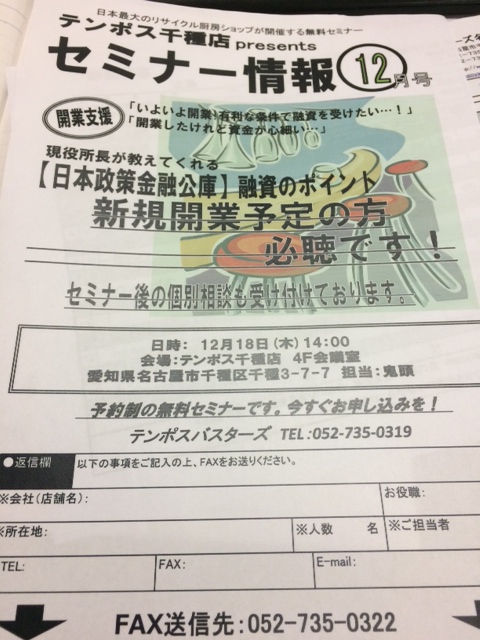 日本最大のリサイクル厨房ショップが開催する無料セミナー
テンポス千種店 presents
セミナー情報 12月号
開業支援
「いよいよ開業!有利な条件で融資を受けたい…!」
「開業したけれど資金が心細い…」
現役所長が教えてくれる
【日本政策金融公庫】融資のポイント
新規開業予定の方
必聴です!
セミナー後の個別相談も受け付けております。
日時: 12月18日(木)14:00
会場:テンポス千種店 4F会議室
愛知県名古屋市千種区千種3-7-7 担当:鬼頭
予約制の無料セミナーです。今すぐお申し込みを!
テンポスバスターズ TEL:052-735-0319
●返信欄 以下の事項をご記入の上、FAXをお送りください。
※会社(店舗名): お役職:
※所在地: ※人数 名 ※ご担当者
TEL: FAX: E-mail:
FAX送信先:052-735-0322